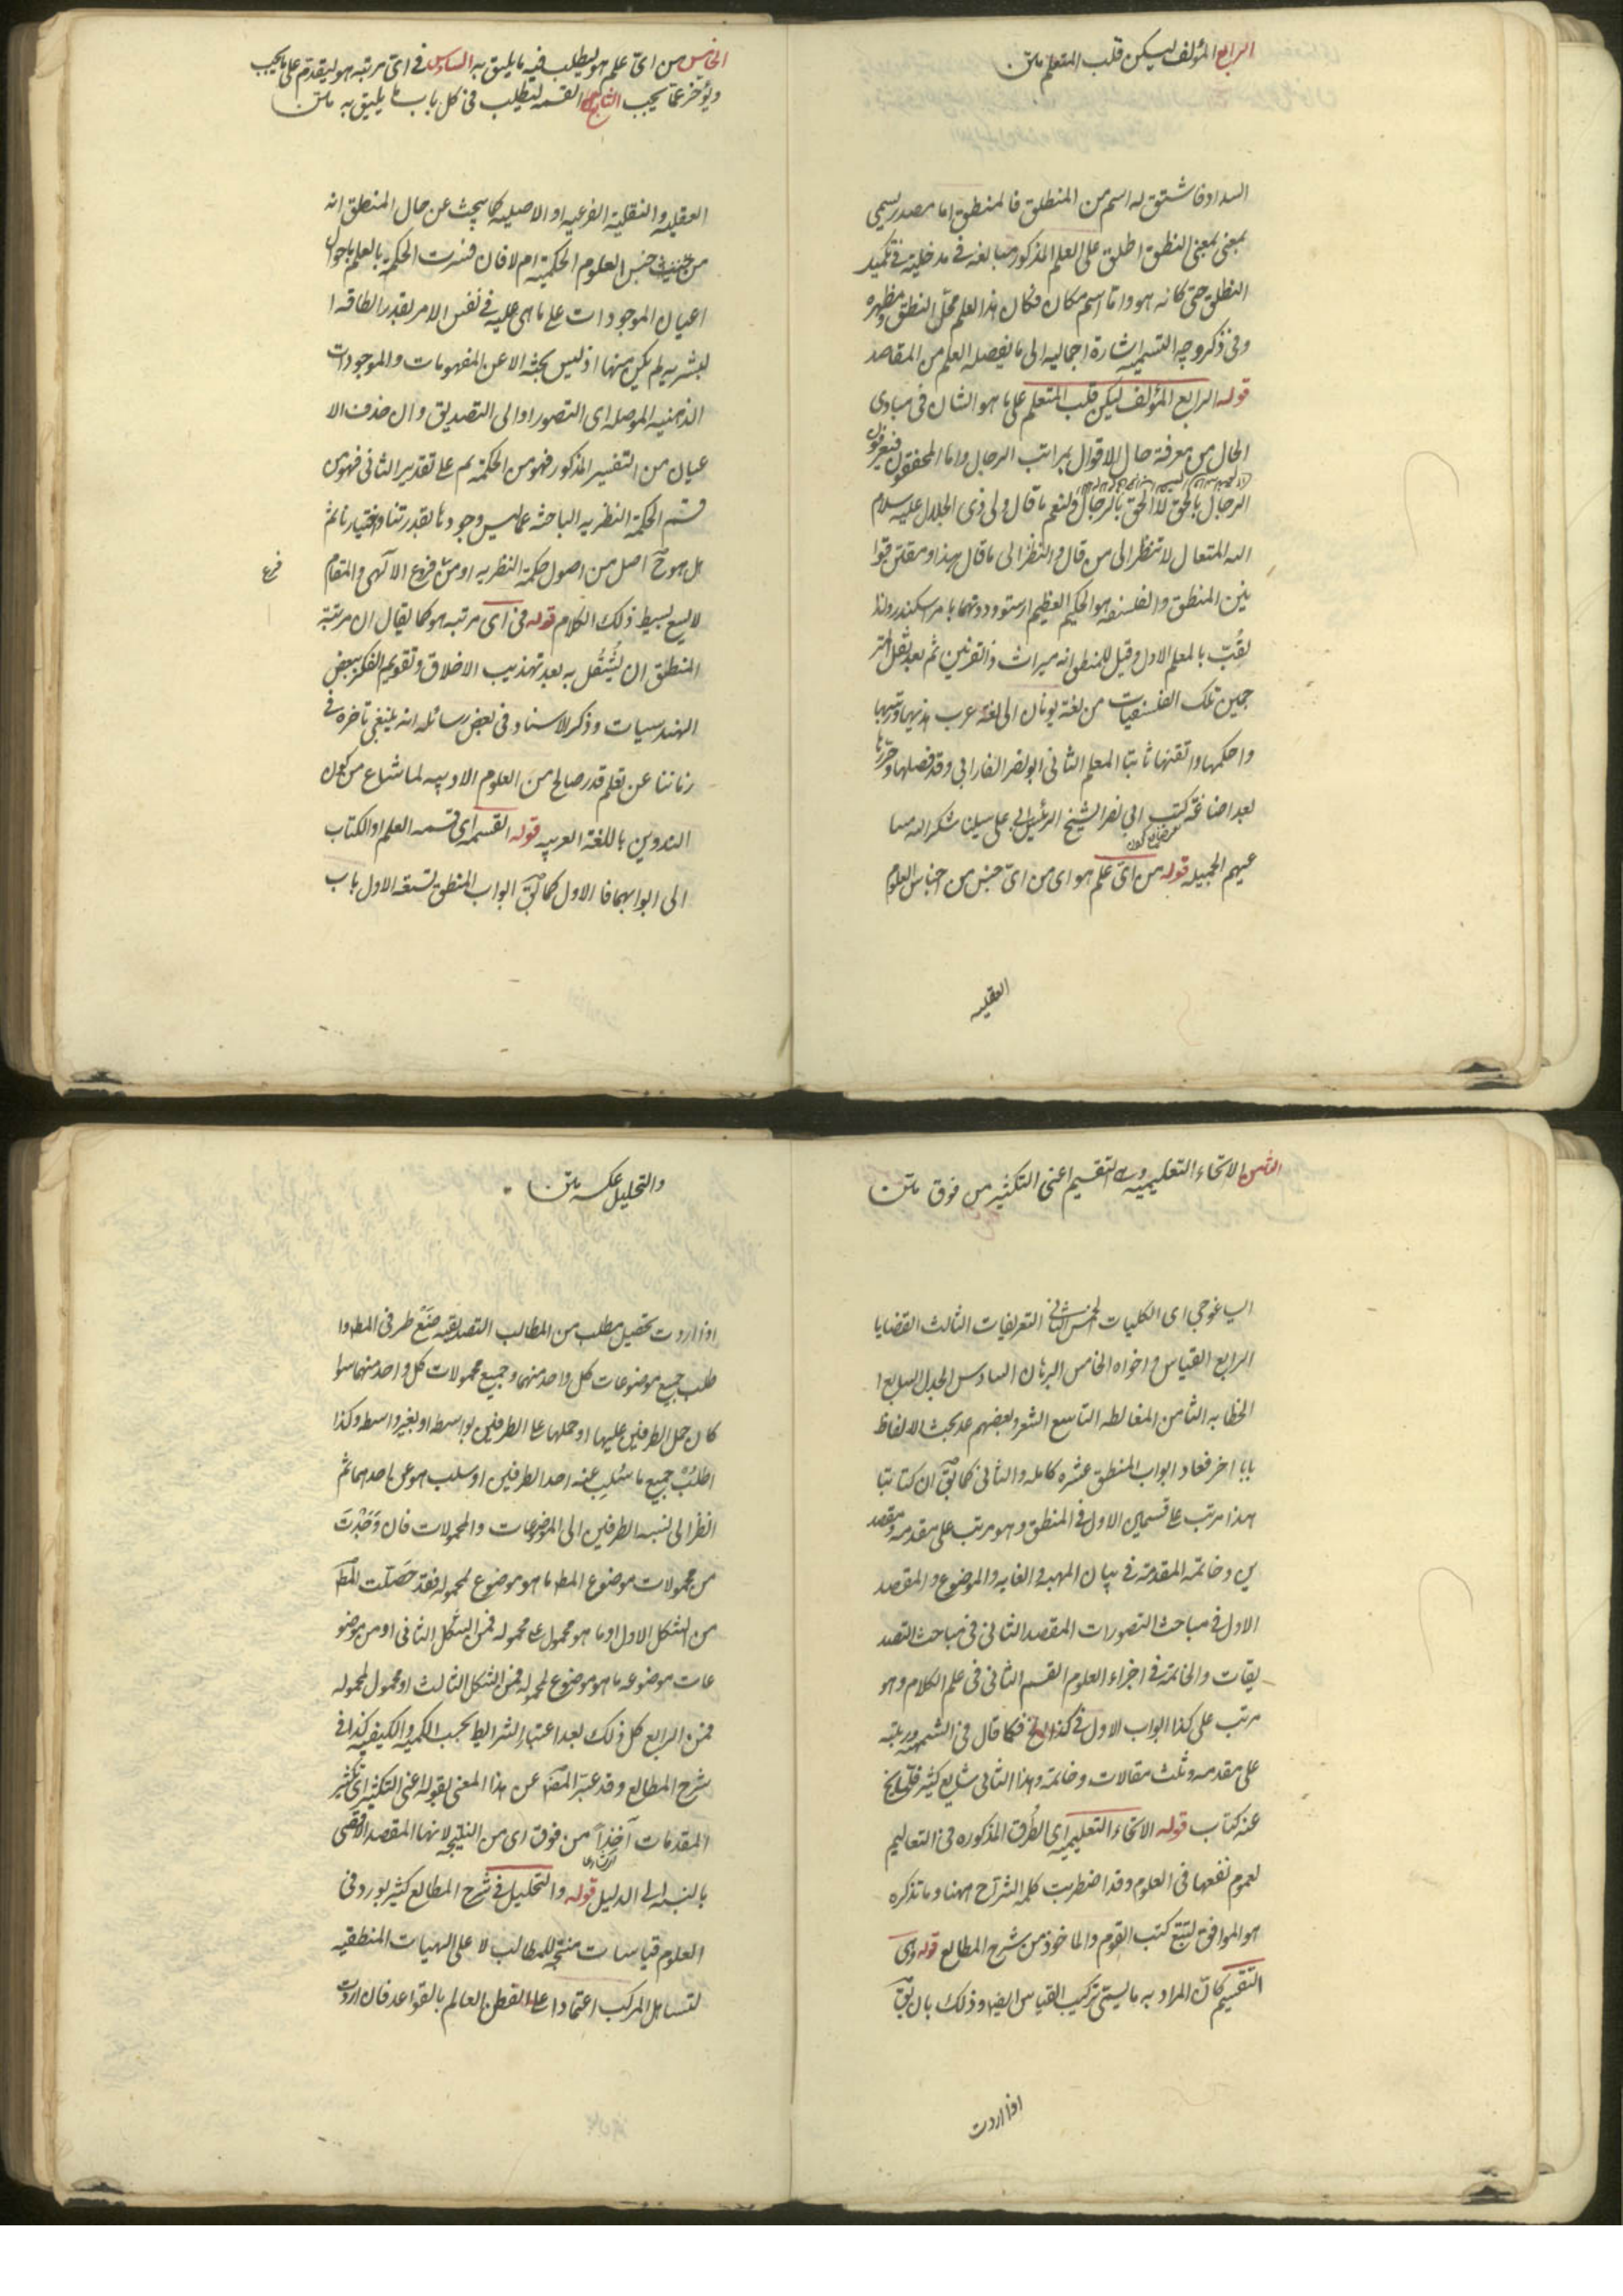 الرابع المؤلف ليسكن قلب المتعلم متن
السداد فاشتق له اسم من المنطلق فالمنطق اما مصدر ميمى
بمعنى بمعنى النطق اطلق على العلم المذكور مبالغه فى مدخليته فى تكميد
النطق حتى كانه هو واما اسم مكان فكان هذا العلم محل النطق ومظهره
وفى ذكر وجه التسميه اشارة اجماليه الى ما يفصله العلم من المقاصد
قوله الرابع المؤلف ليسكن قلب المتعلم على ما هو الشان فى مبادى
الحال من معرفة حال الاقوال بمراتب الرجال واما المحققون فيعرفون
الرجال بالحق لا الحق بالرجال ولنعم ما قال ولى ذى الجلال عليه سلام
الله المتعال لا تنظر الى من قال وانظر الى ما قال هذا ومقنن قوا
نين المنطق والفلسفه هو الحكيم العظيم ارسطو ودونها بامر اسكندر ولذا
لقب بالمعلم الاول وقيل للمنطق انه ميراث ذا القرنين ثم بعد نقل المتر
جمين تلك الفلسفيات من لغة يونان الى لغة عرب هذبها ورتبها
واحكمها واتقنها ثانيا المعلم الثانى ابو نصر الفارابى وقد فصلها وحررها
بعد اضاعة كتب ابى نصر الشيخ الرئيس ابى على سينا شكر الله مسا
عيهم الجميله قوله من اى علم هو اى من اى جنس من اجناس العلوم
العقليه
الخامس من اى علم هو ليطلب فيه ما يليق به السادس فى اى مرتبه هو ليقدم على ما يجب
ويؤخر عما يجب السابع القسمه ليطلب فى كل باب ما يليق به متن
العقليه والنقلية الفرعيه او الاصليه كما يبحث عن حال المنطق انه
من جنس العلوم الحكميه ام لا فان فسرت الحكمة بالعلم باحوال
اعيان الموجودات على ما هى عليه فى نفس الامر بقدر الطاقه ا
لبشريه لم يكن منها اذ ليس بحثه الا عن المفهومات والموجودات
الذهنيه الموصله الى التصور او الى التصديق وان حذف الا
عيان من التفسير المذكور فهو من الحكمة ثم على تقدير الثانى فهو من
قسم الحكمة النظريه الباحثه عما ليس وجودها بقدرتنا واختيارنا ثم
هل هو ح اصل من اصول حكمة النظريه او من فروع الالهى والمقام
فرع
لا يسع بسيط ذلك الكلام قوله فى اى مرتبه هو كما يقال ان مرتبة
المنطق ان يشتغل به بعد تهذيب الاخلاق وتقويم الفكر ببعض
الهندسيات وذكر الاستاد فى بعض رسائله انه ينبغى تاخره فى
زماننا عن تعلم قدر صالح من العلوم الادبيه لما شاع من كون
التدوين باللغة العربيه قوله القسمه اى قسمه العلم او الكتاب
الى ابوابهما فالاول كما يق ابواب المنطق تسعه الاول باب
الثامن الانحاء التعليميه وهى التقسيم اعنى التكثير من فوق متن
ايساغوجى اى الكليات الخمس الثانى التعريفات الثالث القضايا
الرابع القياس واخواه الخامس البرهان السادس الجدل السابع ا
لخطابه الثامن المغالطه التاسع الشعر وبعضهم عد بحث الالفاظ
بابا اخر فعاد ابواب المنطق عشره كامله والثانى كما يق ان كتابنا
هذا مرتب على قسمين الاول فى المنطق وهو مرتب على مقدمه ومقصد
ين وخاتمه المقدمة فى بيان المهيه والغايه والموضوع والمقصد
الاول فى مباحث التصورات المقصد الثانى فى مباحث التصد
يقات والخاتمة فى اجزاء العلوم القسم الثانى فى علم الكلام وهو
مرتب على كذا ابواب الاول فى كذا الخ فكما قال فى الشمسيه ورتبته
على مقدمه وثلث مقالات وخاتمه وهذا الثانى شايع كثير فلا يخ
عنه كتاب قوله الانحاء التعليميه اى الطرق المذكوره فى التعاليم
لعموم نفعها فى العلوم وقد اضطربت كلمة الشراح ههنا وما نذكره
هو الموافق لتتبع كتب القوم والماخوذ من شرح المطالع قوله وهى
التقسيم كان المراد به ما يسمى تركيب القياس ايضا وذلك بان يق
اذا اردت
والتحليل عكسه متن
اذا اردت تحصيل مطلب من المطالب التصديقيه ضع طرفى المط وا
طلب جميع موضوعات كل واحد منهما وجميع محمولات كل واحد منهما سوا
كان حمل الطرفين عليها او حملها على الطرفين بواسطه او بغير واسطه وكذا
اطلب جميع ما سلب عنه احد الطرفين او سلب هو عن احدهما ثم
انظر الى نسبه الطرفين الى الموضوعات والمحمولات فان وجدت
من محمولات موضوع المط ما هو موضوع لمحموله فقد حصلت المط
من الشكل الاول او ما هو محمول على محموله فمن الشكل الثانى او من موضو
عات موضوعه ما هو موضوع لمحموله فمن الشكل الثالث او محمول لمحموله
فمن الرابع كل ذلك بعد اعتبار الشرايط بحسب الكميه والكيفيه كذا فى
شرح المطالع وقد عبر المص عن هذا المعنى بقوله اعنى التكثير اى تكثير
المقدمات آخذا من فوق اى من النتيجه لانها المقصد الاقصى
بالنسبه الى الدليل قوله والتحليل فى شرح المطالع كثيرا يورد فى
العلوم قياسات منتجه للمطالب لا على الهيات المنطقيه
لتساهل المركب اعتمادا على الفطن العالم بالقواعد فان اردت